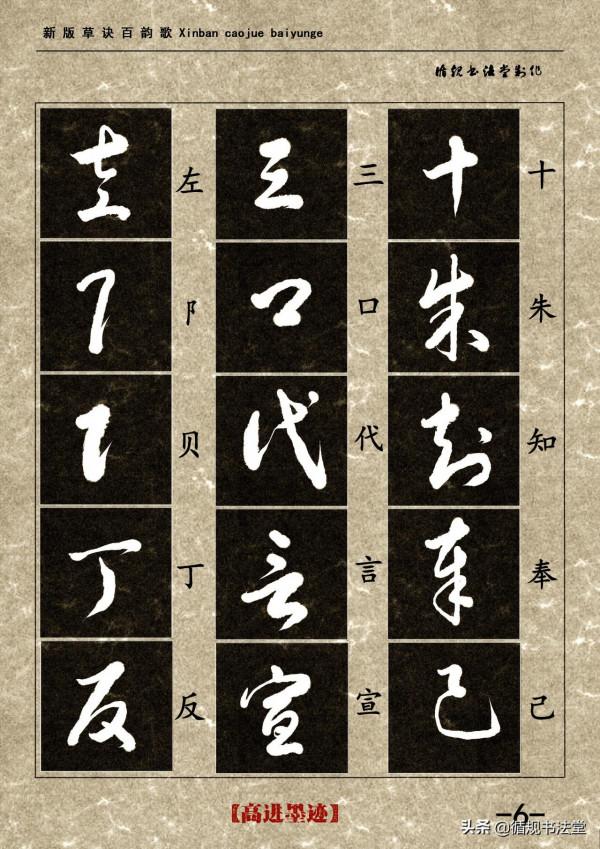 新版草诀百韵歌 Xinban caojue baiyunge
循规书法堂制作
十朱知奉己
三口代言宣
左阝贝丁反
十
朱
知
奉
己
三
口
代
言
宣
左
阝
贝
丁
反
【高进墨迹】
-6-
头条 @循规书法堂